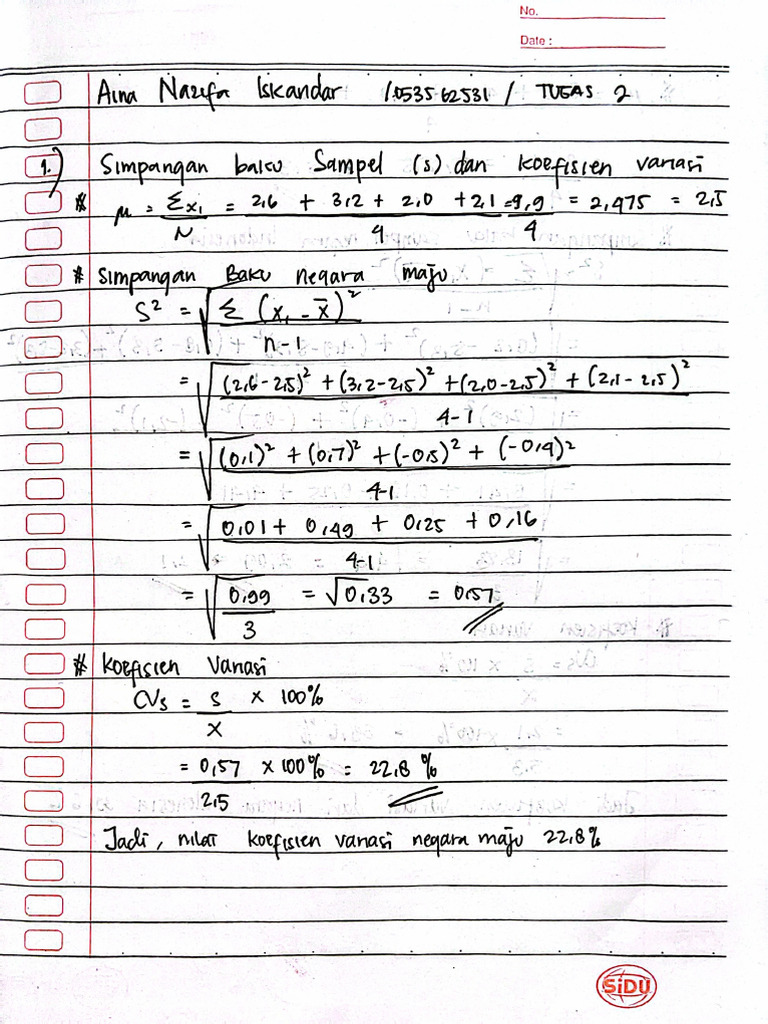 No.
Date :
Aina Nazifa Iskandar 1053562531 / TUGAS 2
1.) Simpangan baku Sampel (s) dan koefisien variasi
* μ = Σx₁ / N = 2,6 + 3,2 + 2,0 + 2,1 / 4 = 9,9 / 4 = 2,475 = 2,5
* Simpangan Baku negara maju
S² = √ Σ (x₁ - x̄)² / n-1
= √ (2,6-2,5)² + (3,2-2,5)² + (2,0-2,5)² + (2,1-2,5)² / 4-1
= √ (0,1)² + (0,7)² + (-0,5)² + (-0,4)² / 4-1
= √ 0,01 + 0,49 + 0,25 + 0,16 / 4-1
= √ 0,99 / 3 = √0,33 = 0,57
* Koefisien Variasi
CVs = s / x × 100%
= 0,57 / 2,5 × 100% = 22,8 %
Jadi, nilai koefisien variasi negara maju 22,8%
SiDU